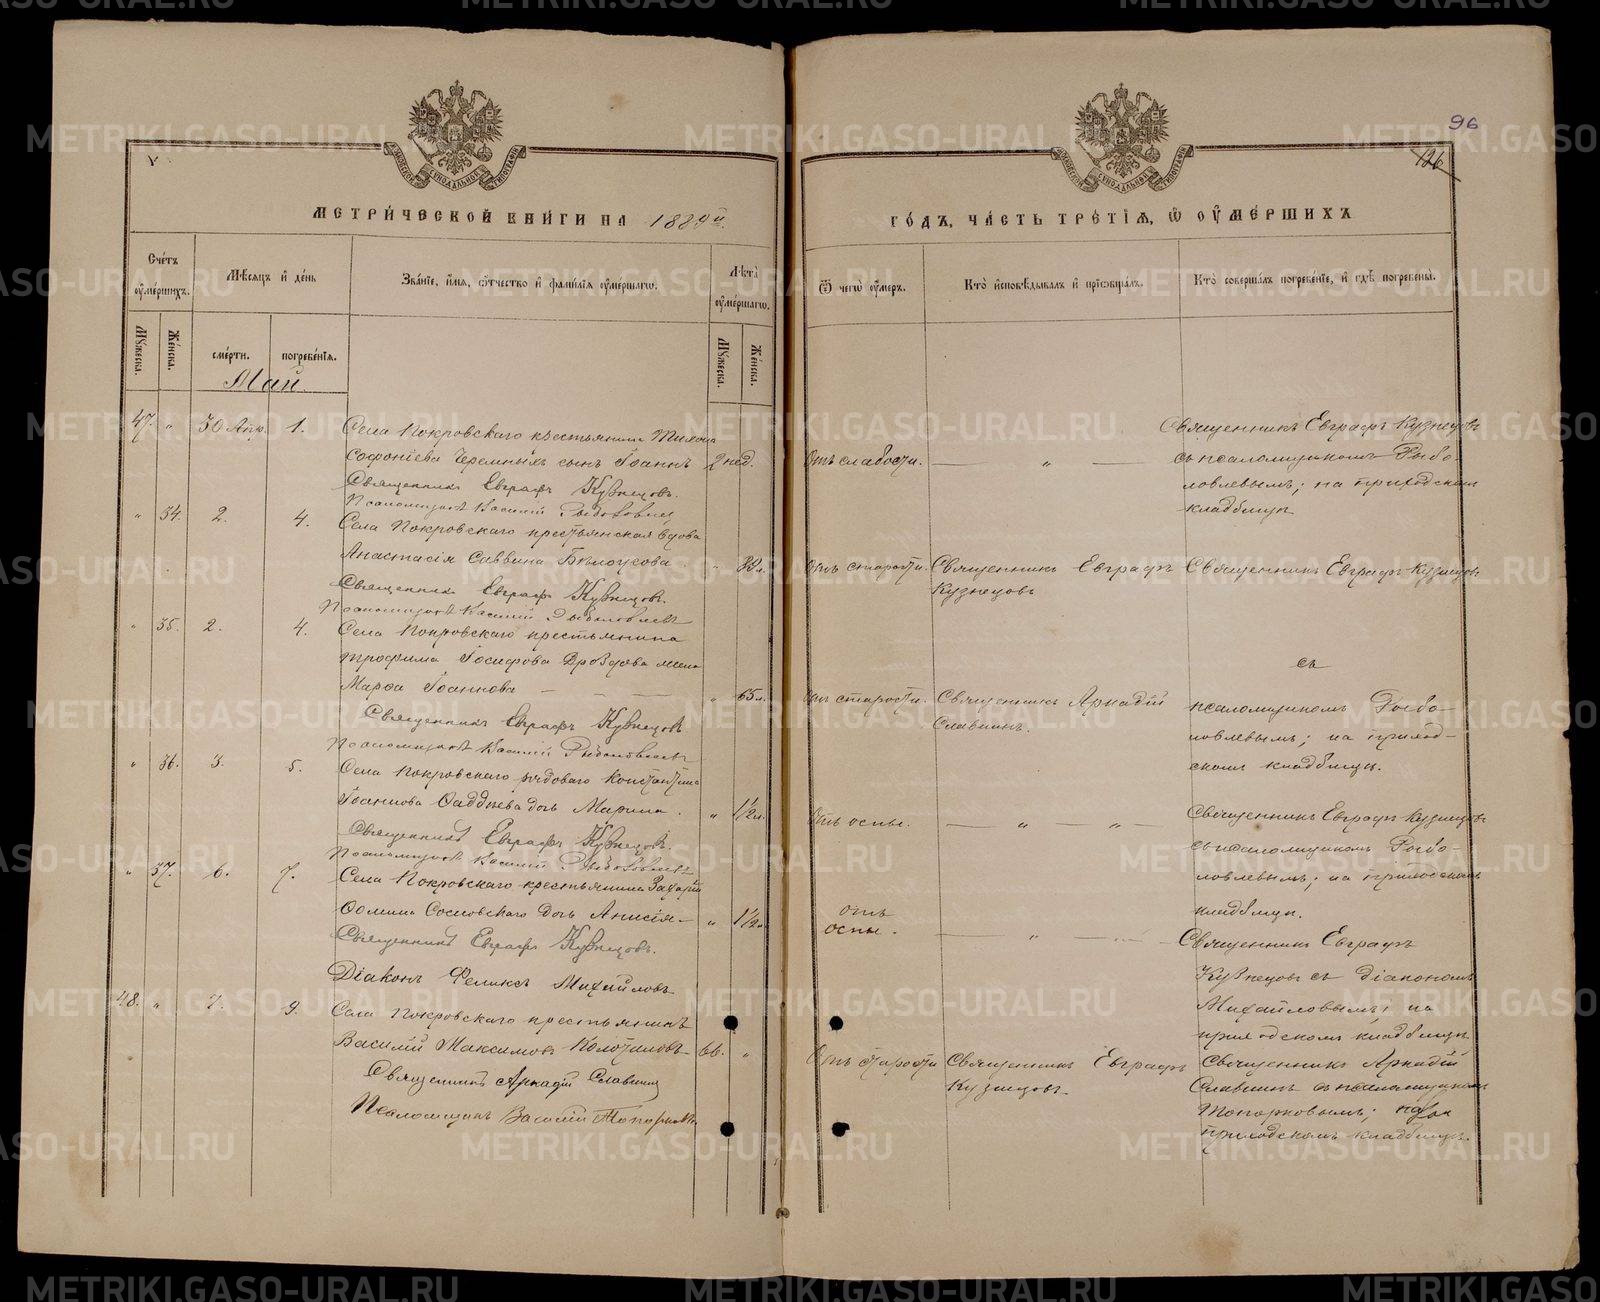 96
126
МЕТРИ́ЧЕСКОЙ КНИ́ГИ НА 1889й.
ГО́ДЪ, ЧА́СТЬ ТРЕ́ТІѦ, Ѿ ОУМЕ́РШИХЪ
Сче́тъ оумéршихъ.
Мѣсяцъ и де́нь
Зва́нїе, и́мя, о́тчество и фами́лїя оуме́ршагѡ.
Лѣта̀ оуме́ршагѡ.
Ѿ чегѡ̀ оу́меръ.
Кто̀ и́сповѣдывалъ и прїобща́лъ.
Кто̀ соверша́лъ погребе́нїе, и гдѣ̀ погребены̀.
Му́жеска.
Же́нска.
сме́рти.
погребе́нїя.
Му́жеска.
Же́нска.
Май.
47. " 30 Апр. 1. Села Покровскаго крестьянина Тихона
Софоніева Черемныхъ сынъ Іоаннъ 2 нед.
Священникъ Евграфъ Кузнецовъ.
Псаломщикъ Василій Рыболовлевъ
Отъ слабости. — " —
Священникъ Евграфъ Кузнецовъ
съ псаломщикомъ Рыбо-
ловлевымъ; на приходскомъ
кладбищѣ
" 34. 2. 4. Села Покровскаго крестьянская вдова
Анастасія Саввина Бѣлоусова. "
Священникъ Евграфъ Кузнецовъ.
Псаломщикъ Василій Рыболовлевъ
Отъ старости. Священникъ Евграфъ
Кузнецовъ
Священникъ Евграфъ Кузнецовъ
" 35. 2. 4. Села Покровскаго крестьянина
Трофима Іосифова Дроздова жена
Марѳа Іоаннова — — — " 65 л.
Священникъ Евграфъ Кузнецовъ
Псаломщикъ Василій Рыболовлевъ
Отъ старости. Священникъ Аркадій
Славнинъ.
съ
псаломщикомъ Рыбо-
ловлевымъ; на приход-
скомъ кладбищѣ.
" 36. 3. 5. Села Покровскаго рядоваго Константина
Іоаннова Ѳаддѣева дочь Марина. " 1½ л.
Священникъ Евграфъ Кузнецовъ.
Псаломщикъ Василій Рыболовлевъ
Отъ оспы. — " — " —
Священникъ Евграфъ Кузнецовъ
съ псаломщикомъ Рыбо-
ловлевымъ; на приходскомъ
кладбищѣ.
" 37. 6. 7. Села Покровскаго крестьянина Захарія
Ѳомина Сосновскаго дочь Анисія — " 1½ л.
Священникъ Евграфъ Кузнецовъ.
Діаконъ Феликсъ Михайловъ
отъ
оспы. — " —
Священникъ Евграфъ
Кузнецовъ съ діакономъ
Михайловымъ; на
приходскомъ кладбищѣ
48. " 7. 9. Села Покровскаго крестьянинъ
Василій Максимовъ Колотиловъ — 66. "
Священникъ Аркадій Славнинъ
Псаломщикъ Василій Топорковъ.
Отъ старости Священникъ Евграфъ
Кузнецовъ.
Священникъ Аркадій
Славнинъ съ псаломщикомъ
Топорковымъ; на
приходскомъ кладбищѣ.
METRIKI.GASO-URAL.RU